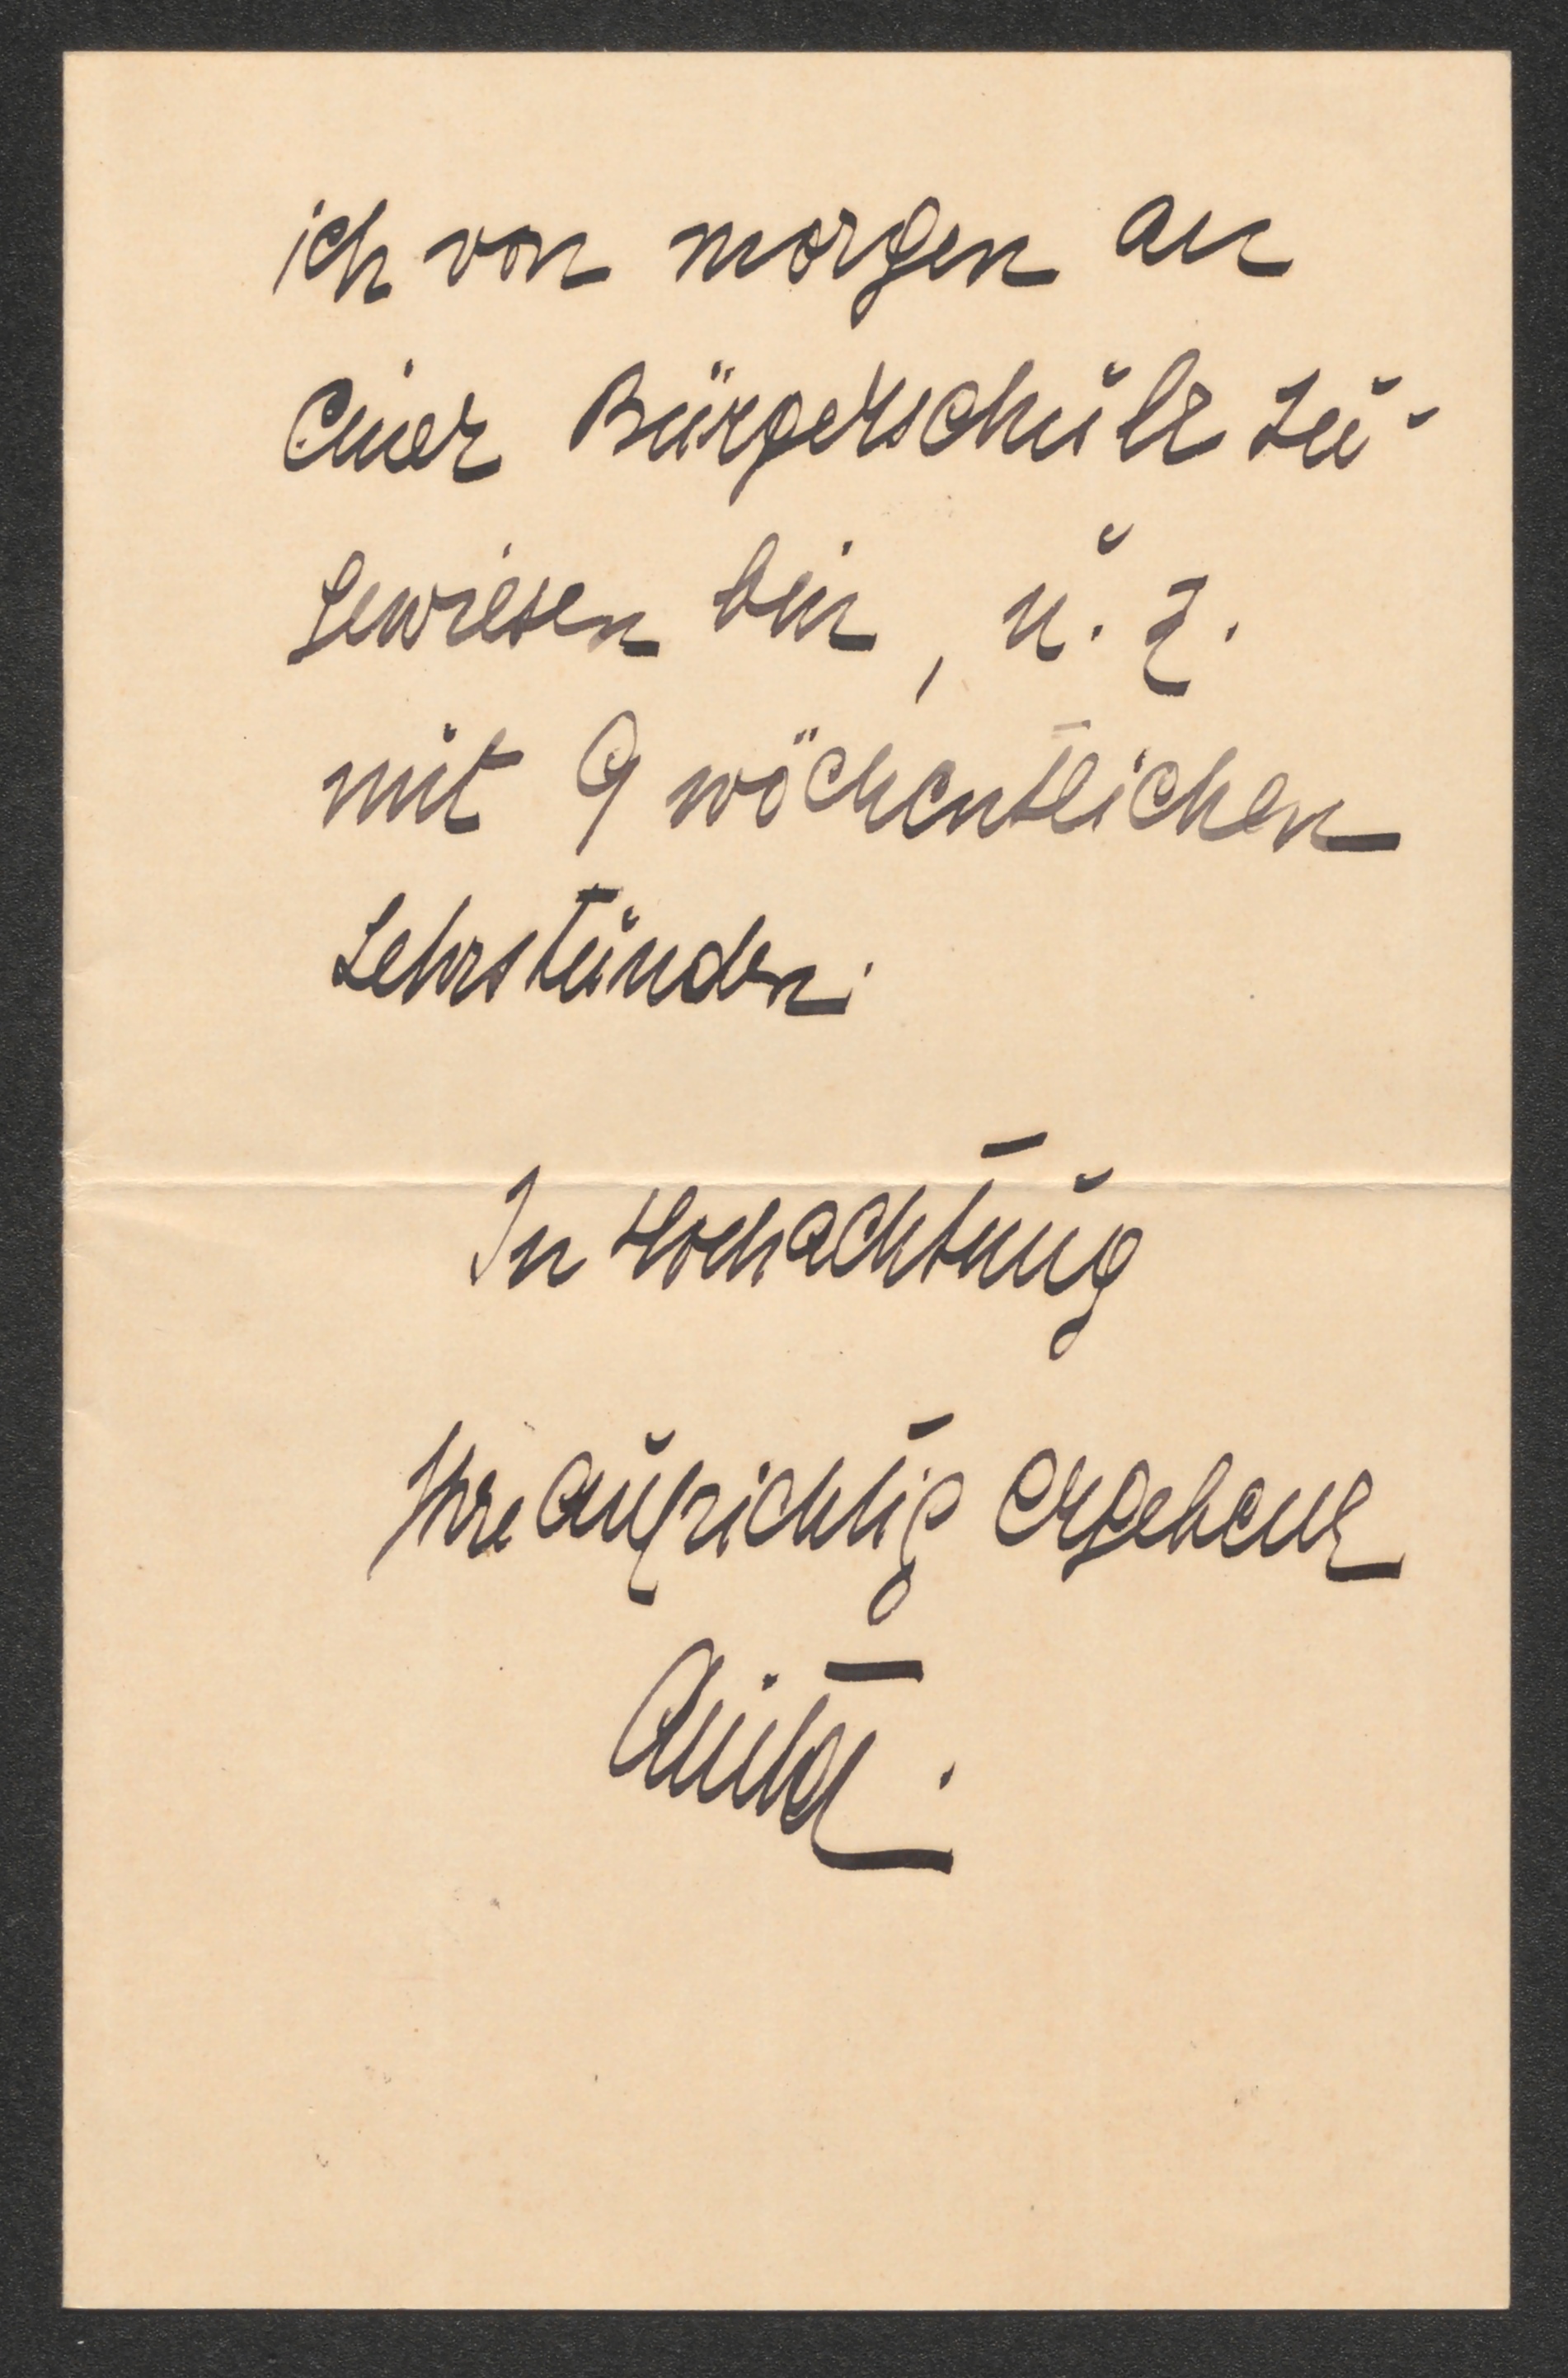 ich von morgen an
einer Bürgerschule zu-
gewiesen bin, u. z.
mit 9 wöchentlichen
Lehrstunden.
In Hochachtung
Ihre aufrichtig ergebene
Anita.